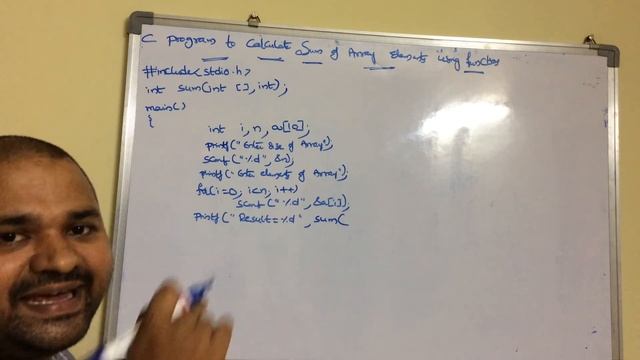 C program to Calculate Sum of Array Elements using function
#include<stdio.h>
int sum(int [],int);
main()
{
int i, n, a[10];
printf("Enter size of Array");
scanf("%d", &n);
printf("Enter elements of Array");
for(i=0; i<n; i++)
scanf("%d", &a[i]);
Printf("Result=%d", sum(